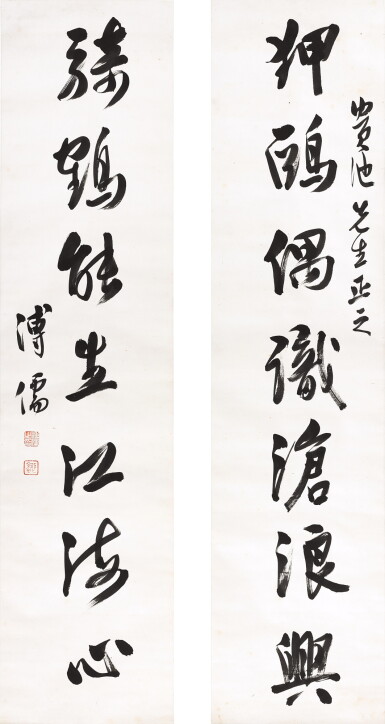 狎鷗偶識滄浪興
賓池先生正之
騎鶴能生江海心
溥儒